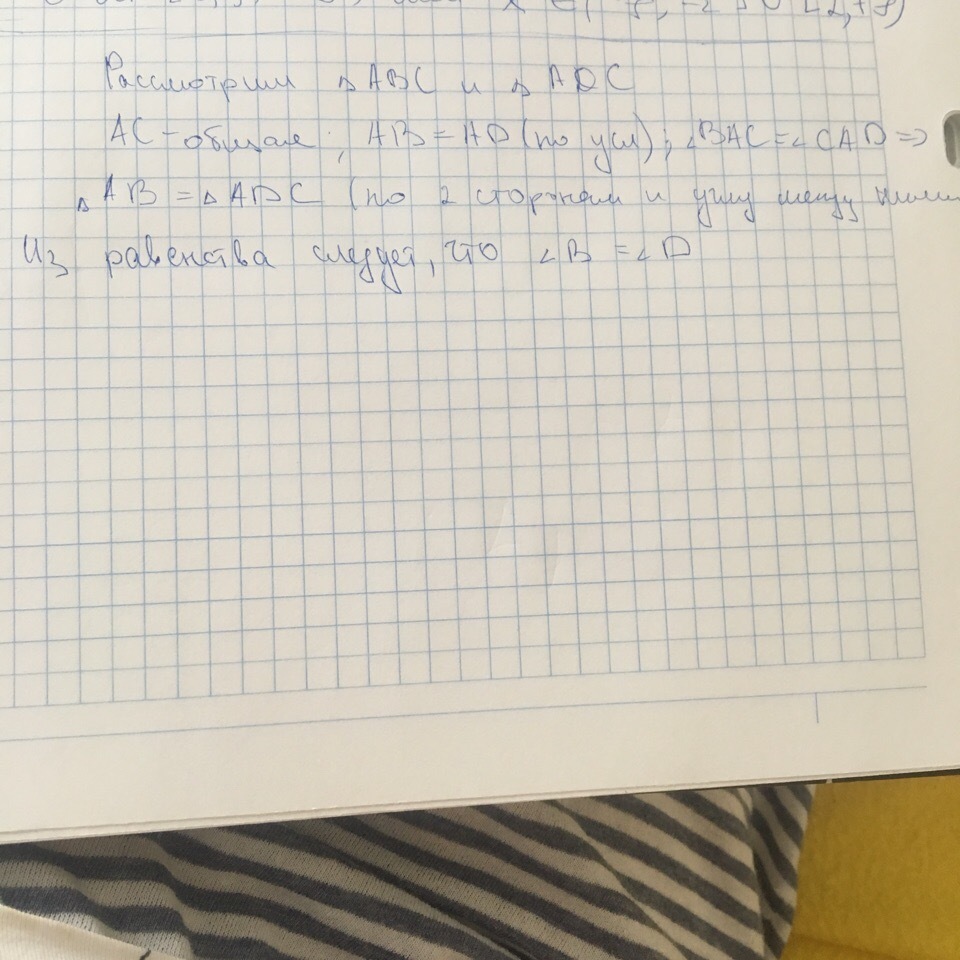 Рассмотрим △ ABC и △ ADC
AC - общая ; AB = AD (по усл) ; ∠BAC = ∠CAD =>
△ AB = △ ADC (по 2 сторонам и углу между ними
Из равенства следует, что ∠B = ∠D